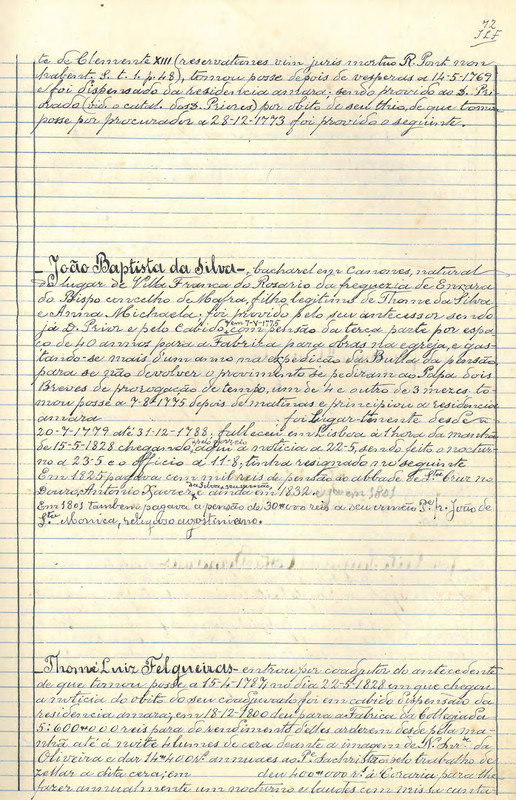 72
te de Clemente XIII (reservationes vim juris mortuo R. Pont non
habent. S. t. 1. p. 48), tomou posse depois de vesperas a 14-5-1769
e foi dispensado da residencia amara; sendo provido ao D. Pri-
orado (vid. o catal. dos D. Priores) por obito de seu thio, de que tomou
posse por procurador a 28-12-1773 foi provido o seguinte.
João Baptista da Silva, bacharel em Canones, natural
do lugar de Villa Franca do Rosario da freguezia de Enxara
do Bispo concelho de Mafra, filho legitimo de Thome da Silva
e Anna Michaela, foi provido pelo seu antecessor sendo
já D. Prior e pelo Cabido, em 7-V-1775 com pensão da terça parte por espa-
ço de 40 annos para a Fabrica para obras na egreja, e gas-
tando-se mais d'um anno na expedição da Bulla da pensão
para se não devolver o provimento se pediram ao Papa dois
Breves de prorogação de tempo, um de 4 e outro de 3 mezes. to-
mou posse a 7-8-1775 depois de matinas e principiou a residencia
amara foi Lugar-tenente desde a
20-7-1779 até 31-12-1788. falleceu em Lisboa à 1 hora da manhã
de 15-5-1828 chegando pelo correio aqui a noticia a 22-5, sendo feito o noctur-
no a 23-5 e o officio a 11-8; tinha resignado no seguinte
Em 1825 pagava cem mil reis de pensão ao abbade de Stª Cruz no
Douro, Antonio Xavier, e ainda em 1832.
Em 1801 tambem pagava a pensão de 30#000 reis a seu irmão Fr. João de
Stª Monica, religioso agostiniano.
Thomé Luiz Felgueiras entrou por coadjutor do antecedente
de que tomou posse a 15-4-1787, no dia 22-5-1828 em que chegou
a noticia do obito do seu coadjuvado foi em cabido dispensado da
residencia amara; em 18-12-1800 deu para a Fabrica da Collegiada
5:600#000 reis para do rendimento d'elles arderem desde pela ma-
nhã até à noite 4 lumes de cera deante a imagem de N. Snrª da
Oliveira e dar 14#400 rs. annuaes ao Pe. sachristão pelo trabalho de
zellar a dita cera; em deu 400#000 rs. à Coraria para lhe
fazer annualmente um nocturno e laudes com missa canta-